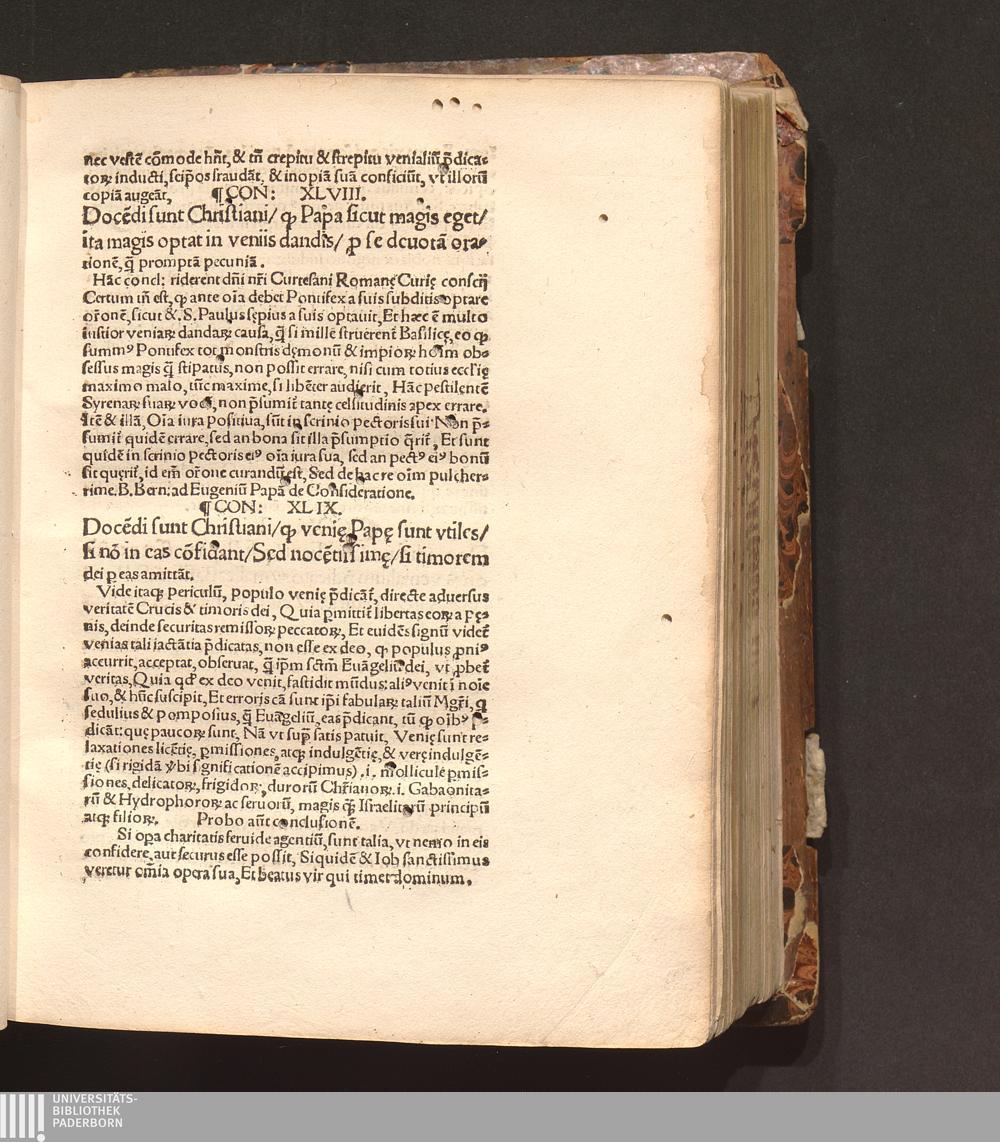 nec vestē cōmode hñt, & tñ crepitu & strepitu venialiū p̄dica-
toꝝ inducti, seip̄os fraudāt, & inopiā suā conficiūt, vt illorū
copiā augeāt, ¶CON: XLVIII.
Docēdi sunt Christiani/ ꝙ Papa sicut magis eget/
ita magis optat in veniis dandis/ ꝓ se deuotā ora-
tionē, q̄ promptā pecuniā.
Hāc concl: riderent dñi nr̃i Curtesani Romanę Curię conscij
Certum tñ est, ꝙ ante oĩa debet Pontifex a suis subditis optare
or̃onē, sicut & .S. Paulus sępius a suis optauit, Et hæc ē multo
iustior veniaꝝ dandaꝝ causa, q̄ si mille struerent̃ Basilicę, eo ꝙ
summꝰ Pontifex tot monstris dęmonū & impioꝝ hoĩm ob-
sessus magis q̄ stipatus, non possit errare, nisi cum totius eccl'ię
maximo malo, tūc maxime, si libēter audierit, Hāc pestilentē
Syrenaꝝ suaꝝ vocē, non p̄sumit̃ tantę celsitudinis apex errare.
Itē & illā, Oĩa iura positiua, sūt in scrinio pectoris sui Non p̄-
sumit̃ quidē errare, sed an bona sit illa p̄sumptio q̄rit̃, Et sunt
quidē in scrinio pectoris eiꝰ oĩa iura sua, sed an pectꝰ eiꝰ bonū
sit quęrit̃, id em̃ or̃one curandū est, Sed de hac re oĩm pulcher-
rime. B. Bern: ad Eugeniū Papā de Consideratione.
¶CON: XLIX.
Docēdi sunt Christiani/ ꝙ venię Papę sunt vtiles/
si nō in eas cōfidant/ Sed nocētissimę/ si timorem
dei ꝑ eas amittāt.
Vide itaqꝫ periculū, populo venię p̄dicāt̃, directe aduersus
veritatē Crucis & timoris dei, Quia ꝑmittit̃ libertas eoꝝ a pę-
nis, deinde securitas remissoꝝ peccatoꝝ, Et euidēs signū videt̃
venias tali iactātia p̄dicatas, non esse ex deo, ꝙ populus ꝓniꝰ
accurrit, acceptat, obseruat, q̄ ip̄m sctm̃ Euāgeliū dei, vt ꝓbet̃
veritas, Quia qd̃ ex deo venit, fastidit mūdus: aliꝰ venit ī noĩe
suo, & hūc suscipit, Et erroris cā sunt ip̄i fabulaꝝ taliū Mgr̃i, q
sedulius & pomposius, q̄ Euāgeliū, eas p̄dicant, tū ꝙ oĩbꝰ p̄-
dicāt: quę paucoꝝ sunt, Nā vt sup̄ satis patuit, Venię sunt re-
laxationes licētię, ꝑmissiones, atqꝫ indulgētię, & verę indulgē-
tię (si rigidā ỽbi significationē accipimus) .i. molliculę ꝑmis-
siones, delicatoꝝ, frigidoꝝ, durorū Chr̃ianoꝝ .i. Gabaonita-
rū & Hydrophoroꝝ ac seruorū, magis qꝫ̄ Israelitarū principū
atqꝫ filioꝝ. Probo aūt conclusionē.
Si opa charitatis feruide agentiū, sunt talia, vt nemo in eis
confidere, aut securus esse possit, Siquidē & Iob sanctissimus
veretur om̃ia opera sua, Et beatus vir qui timet dominum.
UNIVERSITÄTS-
BIBLIOTHEK
PADERBORN